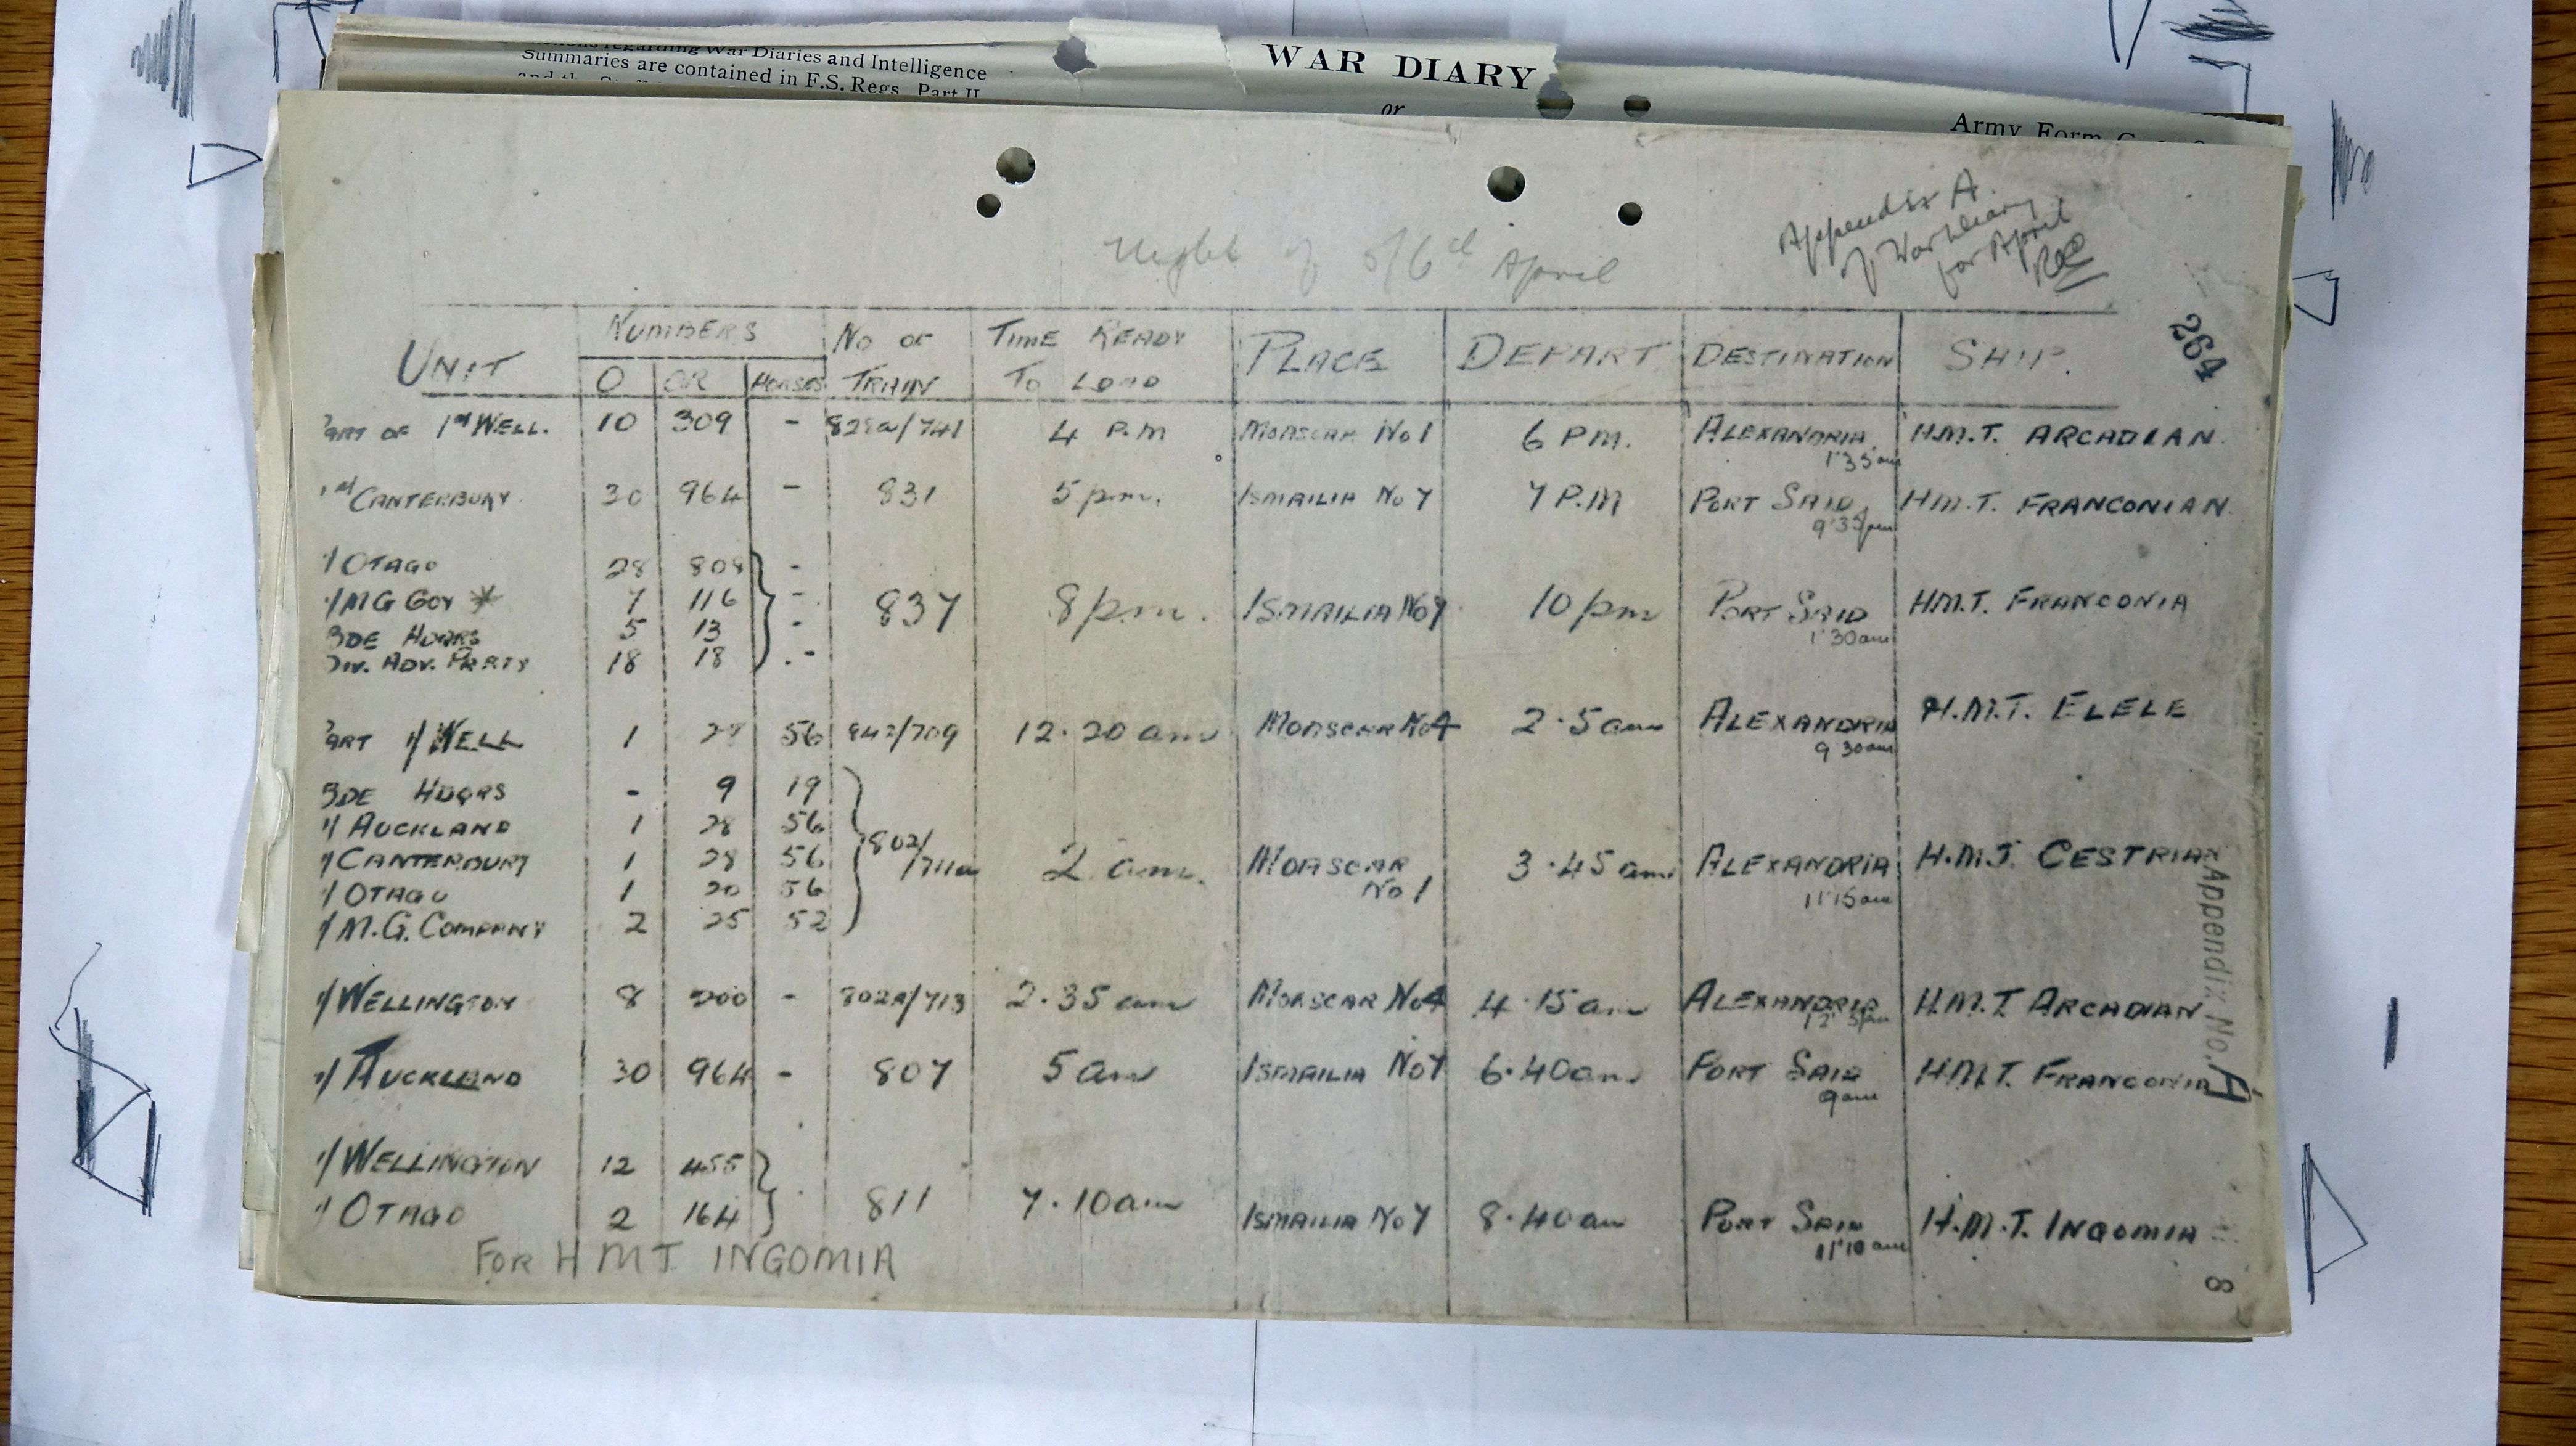 Summaries are contained in F.S. Regs. Part II
regarding War Diaries and Intelligence
WAR DIARY
or
Army Form
Appendix A.
of War Diary
for April
Night of 5/6th April
264
UNIT NUMBERS O OR HORSES No OF TRAIN TIME READY TO LOAD PLACE DEPART DESTINATION SHIP.
PART OF 1st WELL. 10 309 - 828a/741 4 P.M MOASCAR No1 6 PM. ALEXANDRIA 1.35am H.M.T. ARCADIAN.
1st CANTERBURY. 30 964 - 831 5 pm. ISMAILIA No 7 7 P.M PORT SAID 9.35pm H.M.T. FRANCONIAN.
1/ OTAGO 28 808 -
1/ M G Coy * 7 116 - 837 8 pm. ISMAILIA No7 10 pm PORT SAID 1.30am H.M.T. FRANCONIA
BDE HDQRS 5 13 -
DIV. ADV. PARTY 18 18 -
PART 1/ WELL 1 28 56 842/709 12.20 am MOASCAR No4 2.5 am ALEXANDRIA 9 30am H.M.T. ELELE
BDE HDQRS - 9 19
1/ AUCKLAND 1 28 56
1/ CANTERBURY 1 28 56 802/711a 2 am. MOASCAR No 1 3.45 am ALEXANDRIA 11.15am H.M.T. CESTRIAN
1/ OTAGO 1 20 56
1/ M.G. COMPANY 2 25 52
1/ WELLINGTON 8 200 - 802A/713 2.35 am MOASCAR No4 4.15 am ALEXANDRIA H.M.T ARCADIAN
1/ AUCKLAND 30 964 - 807 5 am ISMAILIA No7 6.40am PORT SAID 9am H.M.T. FRANCONIA
1/ WELLINGTON 12 455
1/ OTAGO 2 164 811 7.10am ISMAILIA No7 8.40 am PORT SAID 11.10 am H.M.T. INGOMIA
FOR H M T INGOMIA
Appendix No. A
8